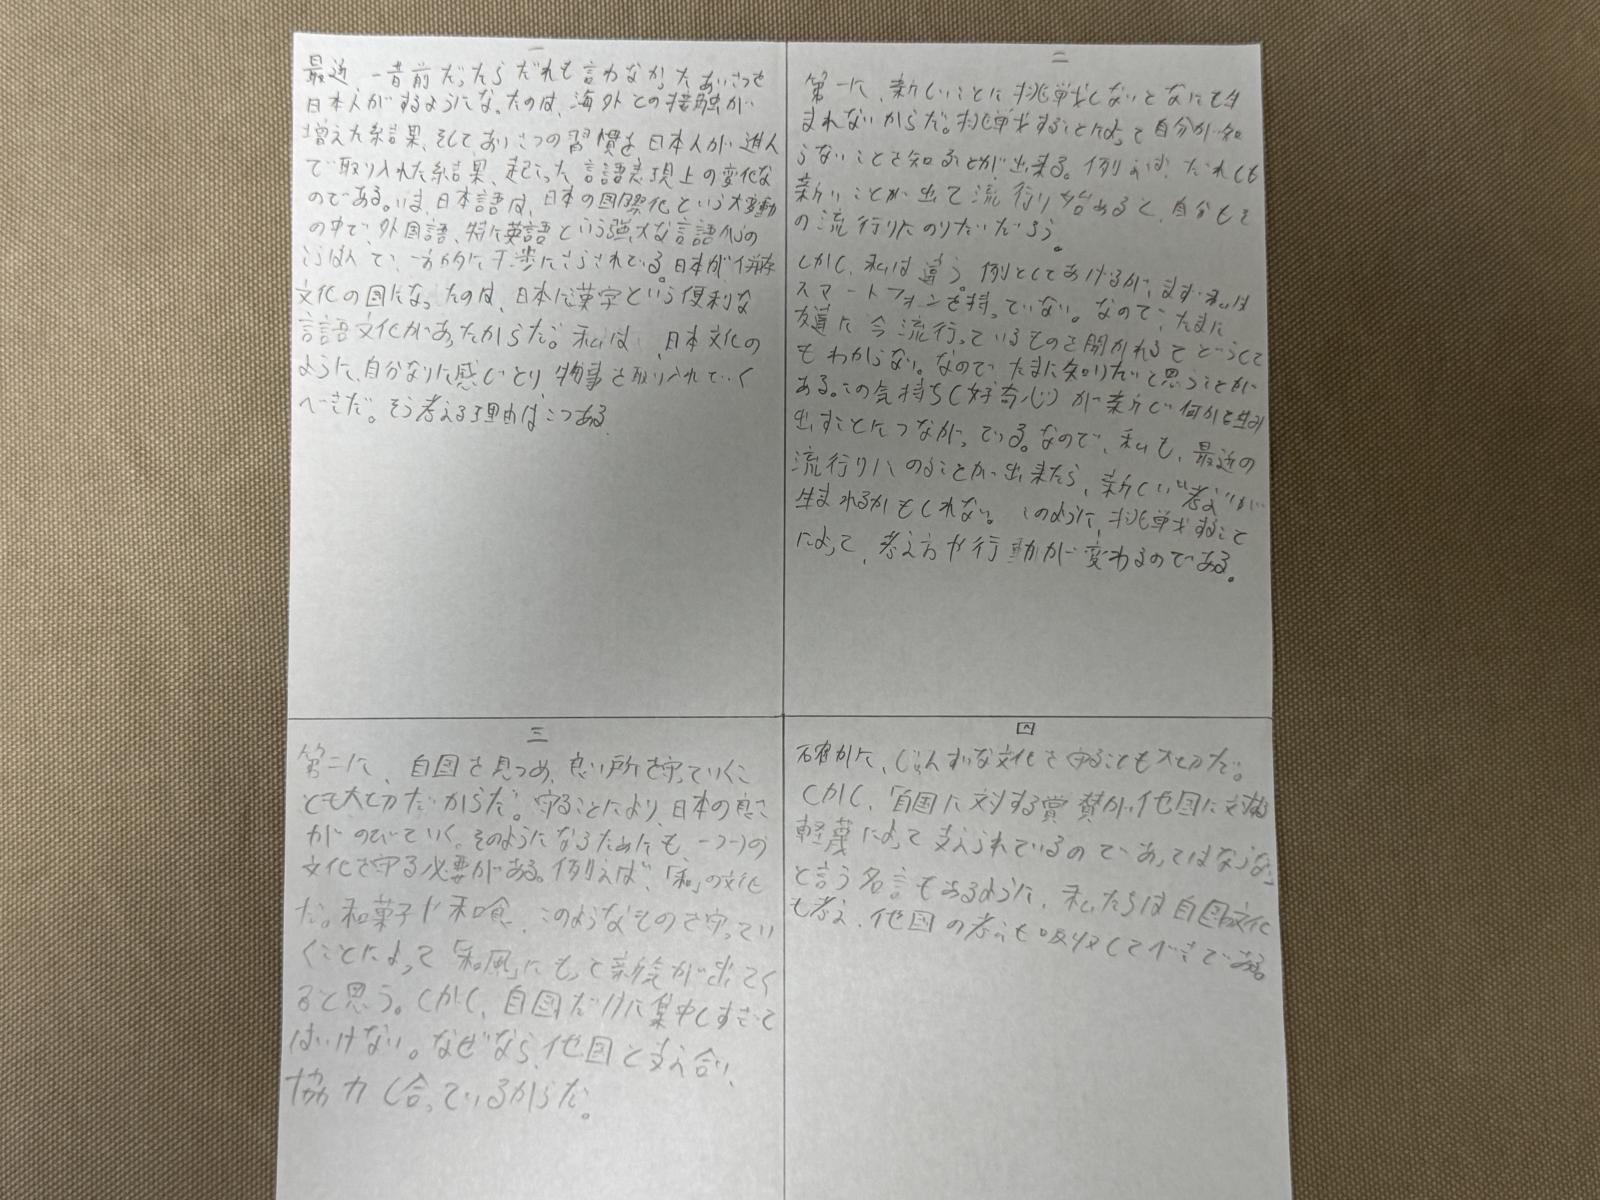 一
最近、一昔前だったらだれも言わなかったあいさつを
日本人がするようになったのは、海外との接触が
増えた結果、そしてあいさつの習慣を日本人が進ん
で取り入れた結果、起こった言語表現上の変化な
のである。いま、日本語は、日本の国際化という大変動
の中で、外国語、特に英語という強大な言語からの
一方的に干渉にさらされている。日本が併存
文化の国になったのは、日本に漢字という便利な
言語文化があったからだ。私は、日本文化の
ように、自分なりに感じとり物事を取り入れていく
べきだ。そう考える理由は二つある
二
第一に、新しいことに挑戦しないとなにも生
まれないからだ。挑戦することによって自分が知
らないことを知ることが出来る。例えば、だれしも
新しいことが出て流行り始めると、自分もそ
の流行りにのりたいだろう。
しかし、私は違う。例としてあげるが、まず私は
スマートフォンを持っていない。なので、たまに
友達に今流行っているものを聞かれるとどうして
もわからない。なので、たまに知りたいと思うことが
ある。この気持ち(好奇心)が新しく何かを生み
出すことにつながっている。なので、私も、最近の
流行りにのることが出来たら、新しい“考え”が
生まれるかもしれない。このように、挑戦すること
によって、考え方や行動が変わるのである。
三
第二に、自国を見つめ、良い所を守っていくこ
とも大切だからだ。守ることにより、日本の良さ
がのびていく。そのようになるためにも一つ一つの
文化を守る必要がある。例えば、「和」の文化
だ。和菓子や和食、このようなものを守ってい
くことによって「和風」にもっと新会が出てく
ると思う。しかし、自国だけに集中しすぎて
はいけない。なぜなら、他国と支え合い、
協力し合っているからだ。
四
確かに、じゅんすいな文化を守ることも大切だ。
しかし、「自国に対する賞賛が、他国に対する
軽蔑によって支えられているのであってはならない」
と言う名言もあるように、私たちは自国文化
も考え、他国の考えも吸収してべきである。